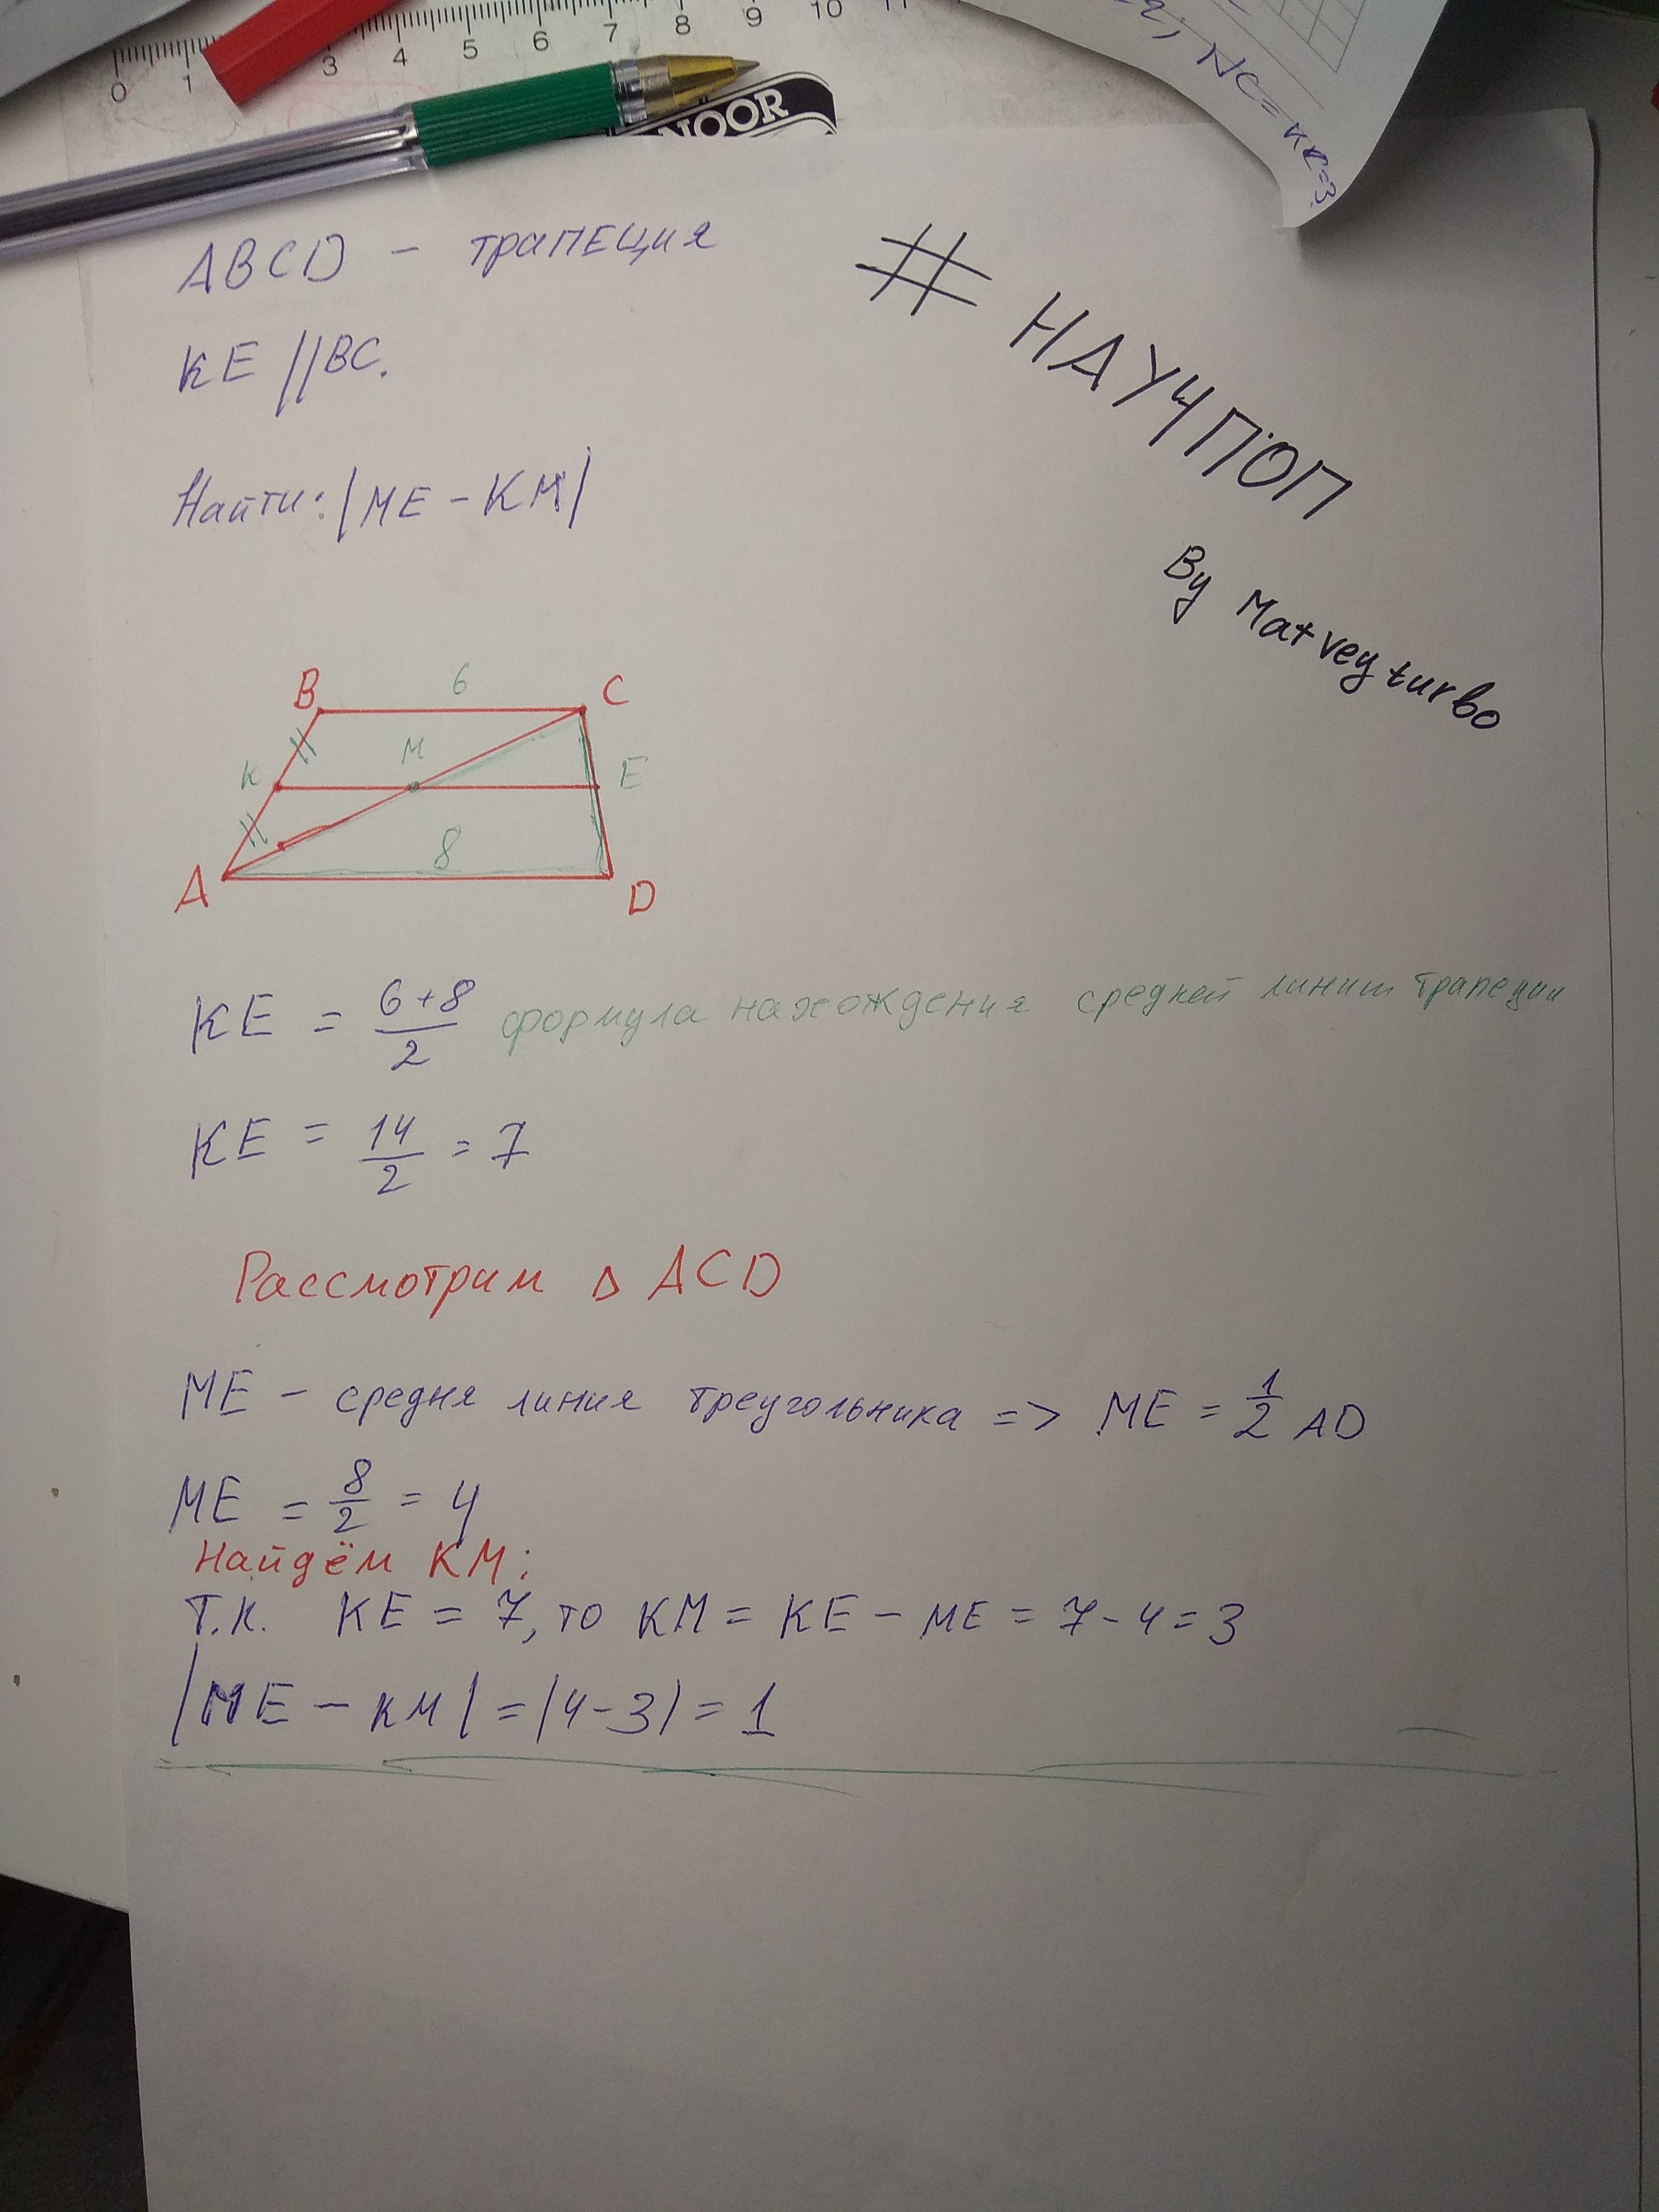 0 1 3 4 5 6 7 8 9 10 11
NOOR
NC = KE = 3
ABCD - трапеция
KE || BC.
Найти: |ME - KM|
# НАУЧПОП
By Matveyturbo
B 6 C
K M E
8
A D
KE = (6+8)/2 формула нахождения средней линии трапеции
KE = 14/2 = 7
Рассмотрим △ ACD
ME - средня линия треугольника => ME = 1/2 AD
ME = 8/2 = 4
Найдём KM:
Т.к. KE = 7, то KM = KE - ME = 7-4 = 3
|ME - KM| = |4-3| = 1